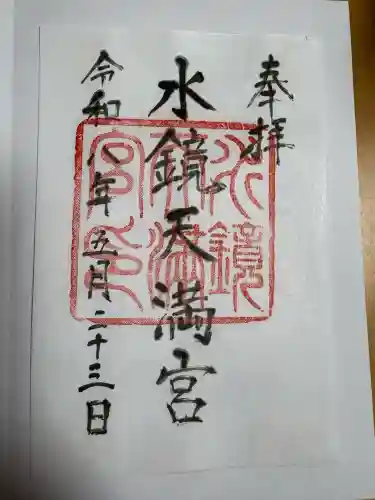 奉拝
水鏡天満宮
令和八年五月二十三日
水鏡
天満
宮印